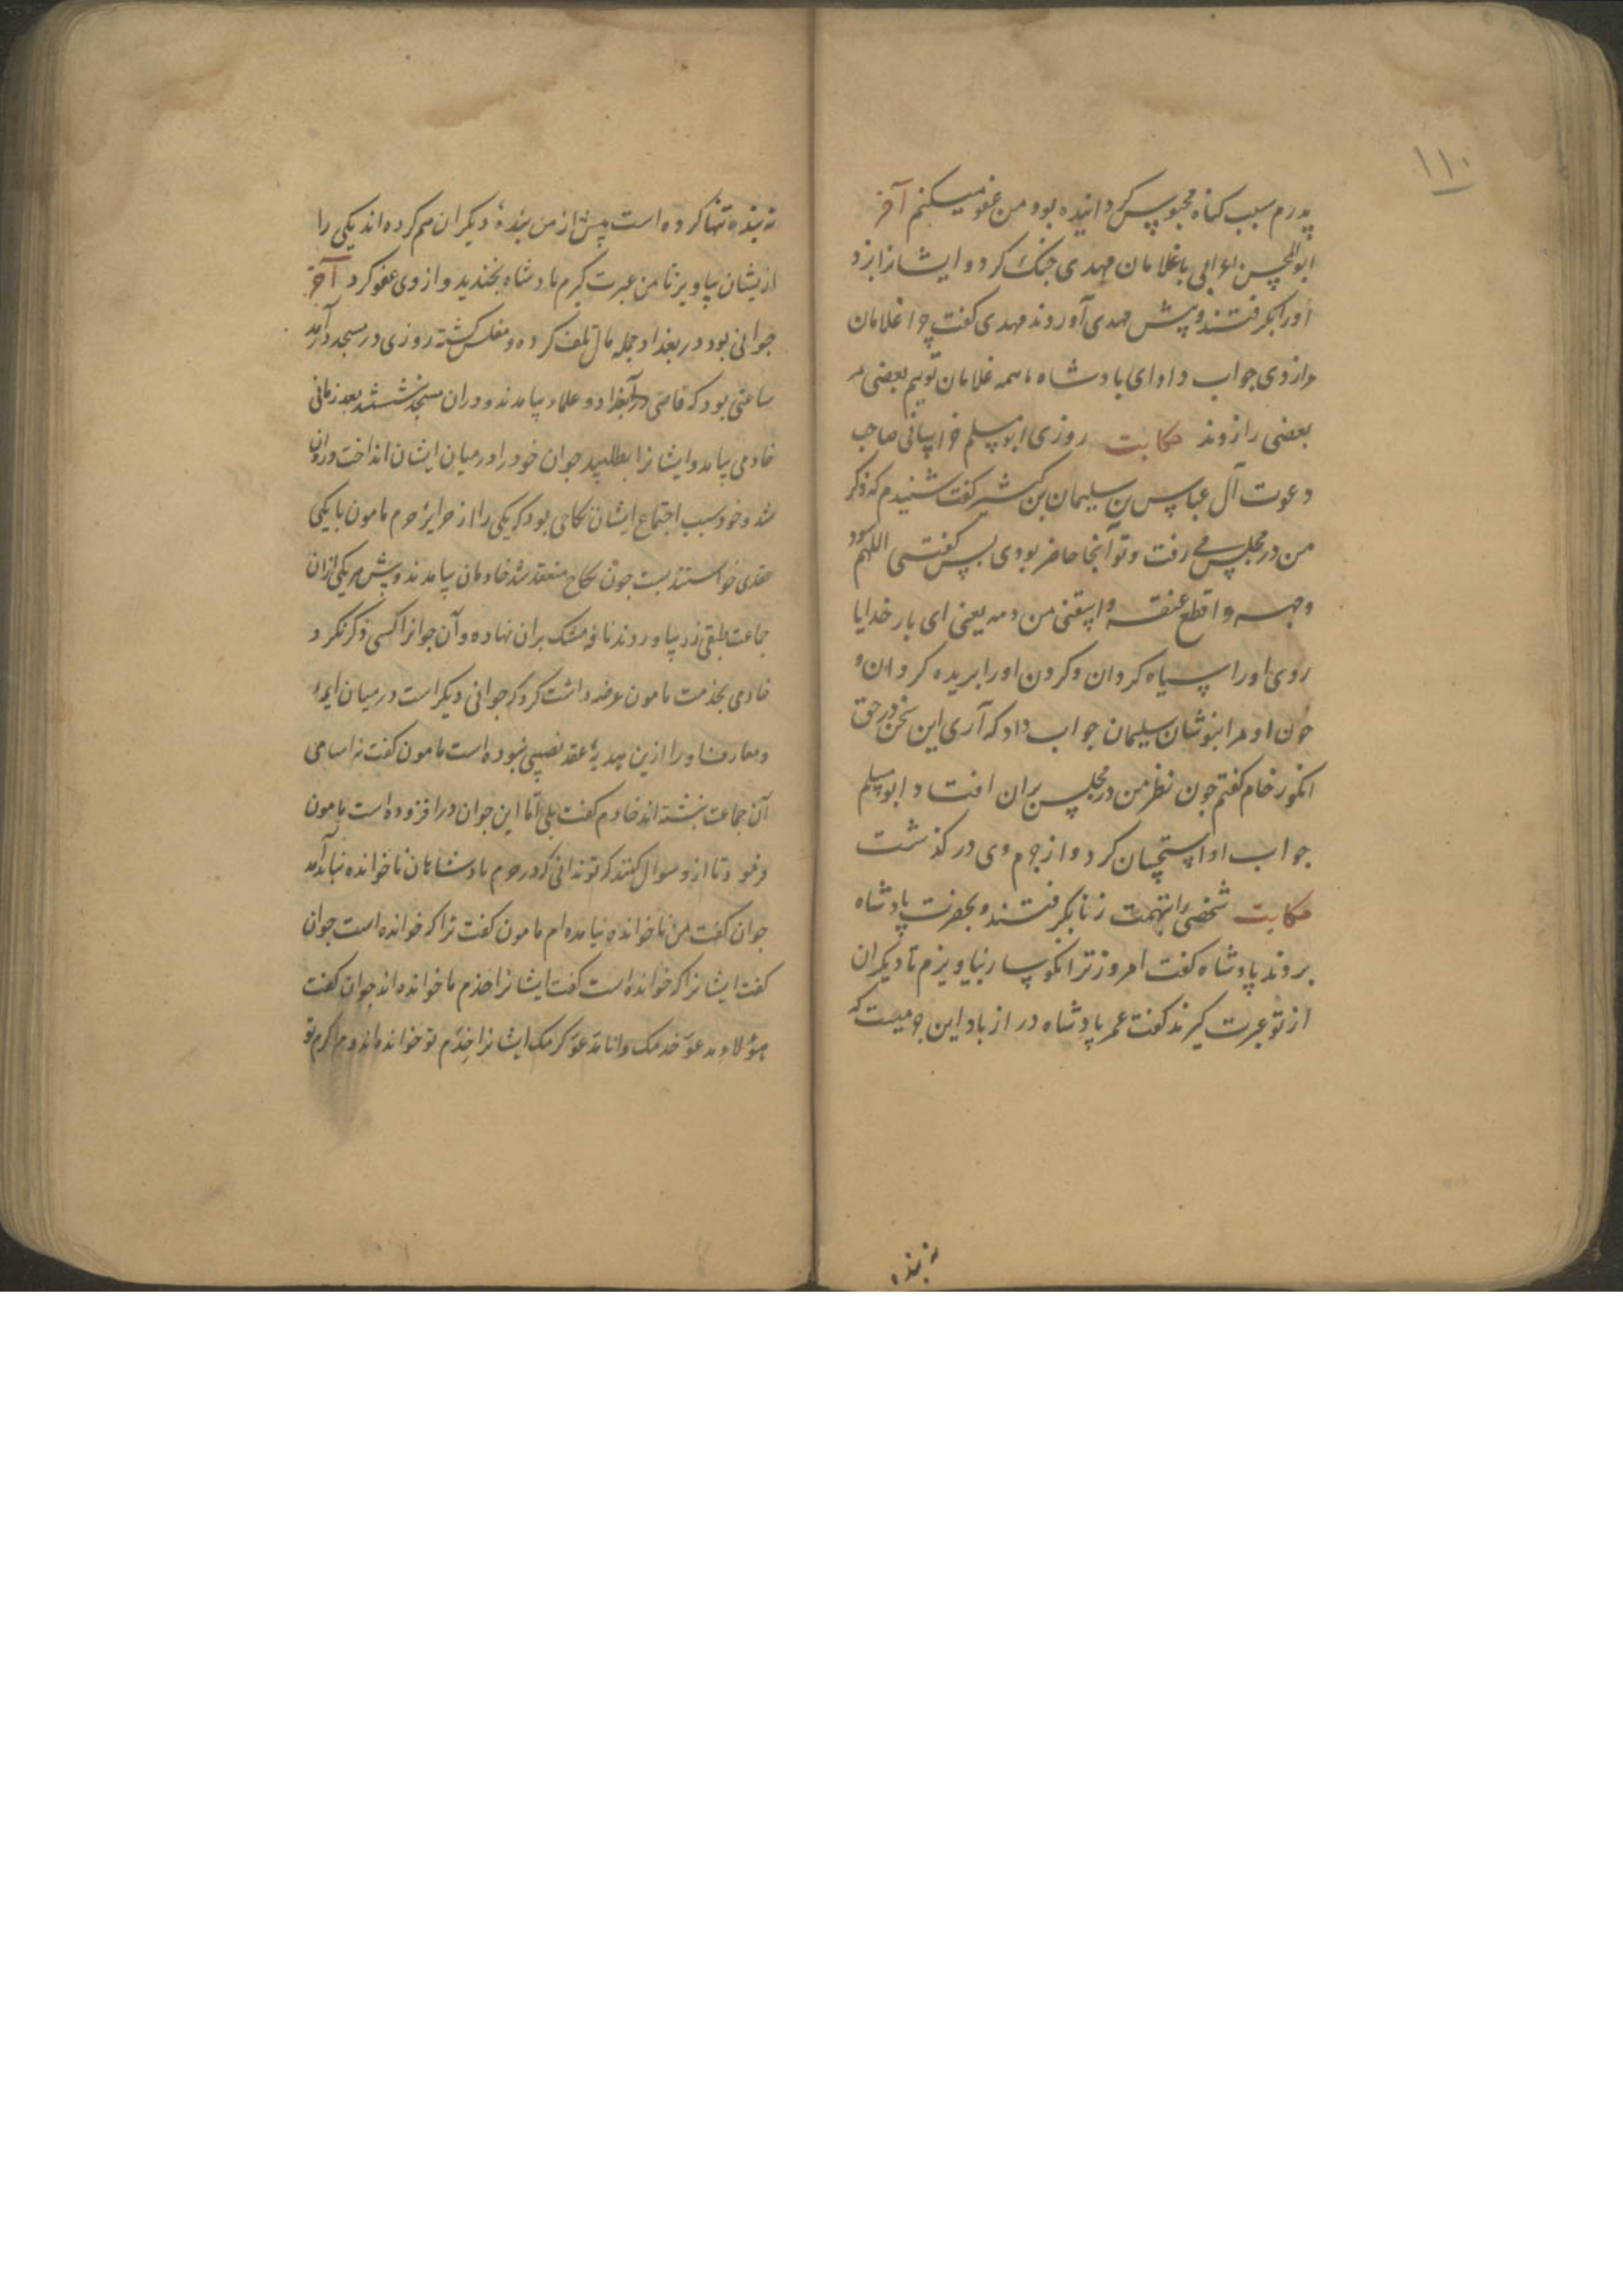 ۱۱۰
پدرم بسبب کناه محبوس کردانیده بود و من عفو میکنم آخر
ابوالحسن اعرابی با غلامان مهدی جنک کرد و ایشانرا بزد
اورا بکرفتند و پیش مهدی آوردند مهدی کفت چرا غلامان
مرا زدی جواب داد ای بادشاه ما همه غلامان توییم بعضی مر
بعضی را زدند حکایت روزی ابو مسلم خراسانی صاحب
دعوت آل عباس بن سلیمان بن کثیر کفت شنیدم که ذکر
من در مجلس می رفت و تو آنجا حاضر بودی بس کفتی اللهم سود
وجهه و اقطع عنقه و اسقنی من دمه یعنی ای بار خدایا
روی اورا سیاه کردان و کردن اورا بریده کردان و
خون او مرا بنوشان سلیمان جواب داد که آری این سخن در حق
انکور خام کفتم جون نظر من در مجلس بران افتاد ابو مسلم
جواب اورا استحسان کرد و از جرم وی در کذشت
حکایت شخصی را بتهمت زنا بکرفتند و بحضرت پادشاه
بردند پادشاه کفت امروز ترا نکوسار بیاویزم تا دیکران
از تو عبرت کیرند کفت عمر پادشاه دراز باد این جرمیست که
نه بنده
نه بنده تنها کرده است پیش از من بندهٔ دیکران هم کرده اند یکی را
ازیشان بیاویز تا من عبرت کیرم بادشاه بخندید و از وی عفو کرد آخر
جوانی بود در بغداد جمله مال تلف کرده و مفلس کشته روزی در مسجد درآمد
ساعتی بود که قاضی بغداد و علماء بیامدند و دران مسجد بنشستند بعد زمانی
خادمی بیامد و ایشانرا بطلبید جوان خود را در میان ایشان انداخت و روان
شد و خود سبب اجتماع ایشان نکاحی بود که یکی را از حرایر حرم مامون با یکی
عقدی خواستند بست جون نکاح منعقد شد خادمان بیامدند و پیش هر یکی ازان
جماعت طبقی زر بیاوردند نافه مشک بران نهاده و آن جوانرا کسی ذکر نکرد
خادمی بخدمت مامون عرضه داشت کرد که جوانی دیکر است در میان ایمه
و معارف اورا ازین هدیهٔ عقد نصیبی نبوده است مامون کفت نه اسامی
آن جماعت بنشته اند خادم کفت بلی اما این جوان در افزوده است مامون
فرمود تا ازو سوال کنند که تو ندانی که در حرم بادشاهان ناخوانده نباید آمد
جوان کفت من ناخوانده نیامده ام مامون کفت ترا که خوانده است جوان
کفت ایشانرا که خوانده است کفت ایشانرا خدم ما خوانده اند جوان کفت
هؤلاء تدعو خدمک وانا تدعو کرمک ایشانرا خدم تو خوانده اند و مرا کرم تو